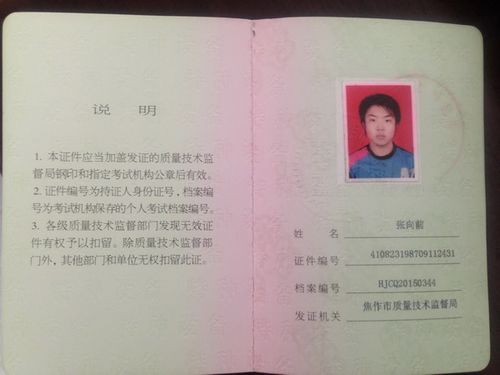 说 明
1. 本证件应当加盖发证的质量技术监
督局钢印和指定考试机构公章后有效。
2. 证件编号为持证人身份证号，档案编
号为考试机构保存的个人考试档案编号。
3. 各级质量技术监督部门发现无效证
件有权予以扣留。除质量技术监督部
门外，其他部门和单位无权扣留此证。
姓 名 张向前
证件编号 410823198709112431
档案编号 HJCQ20150344
发证机关 焦作市质量技术监督局